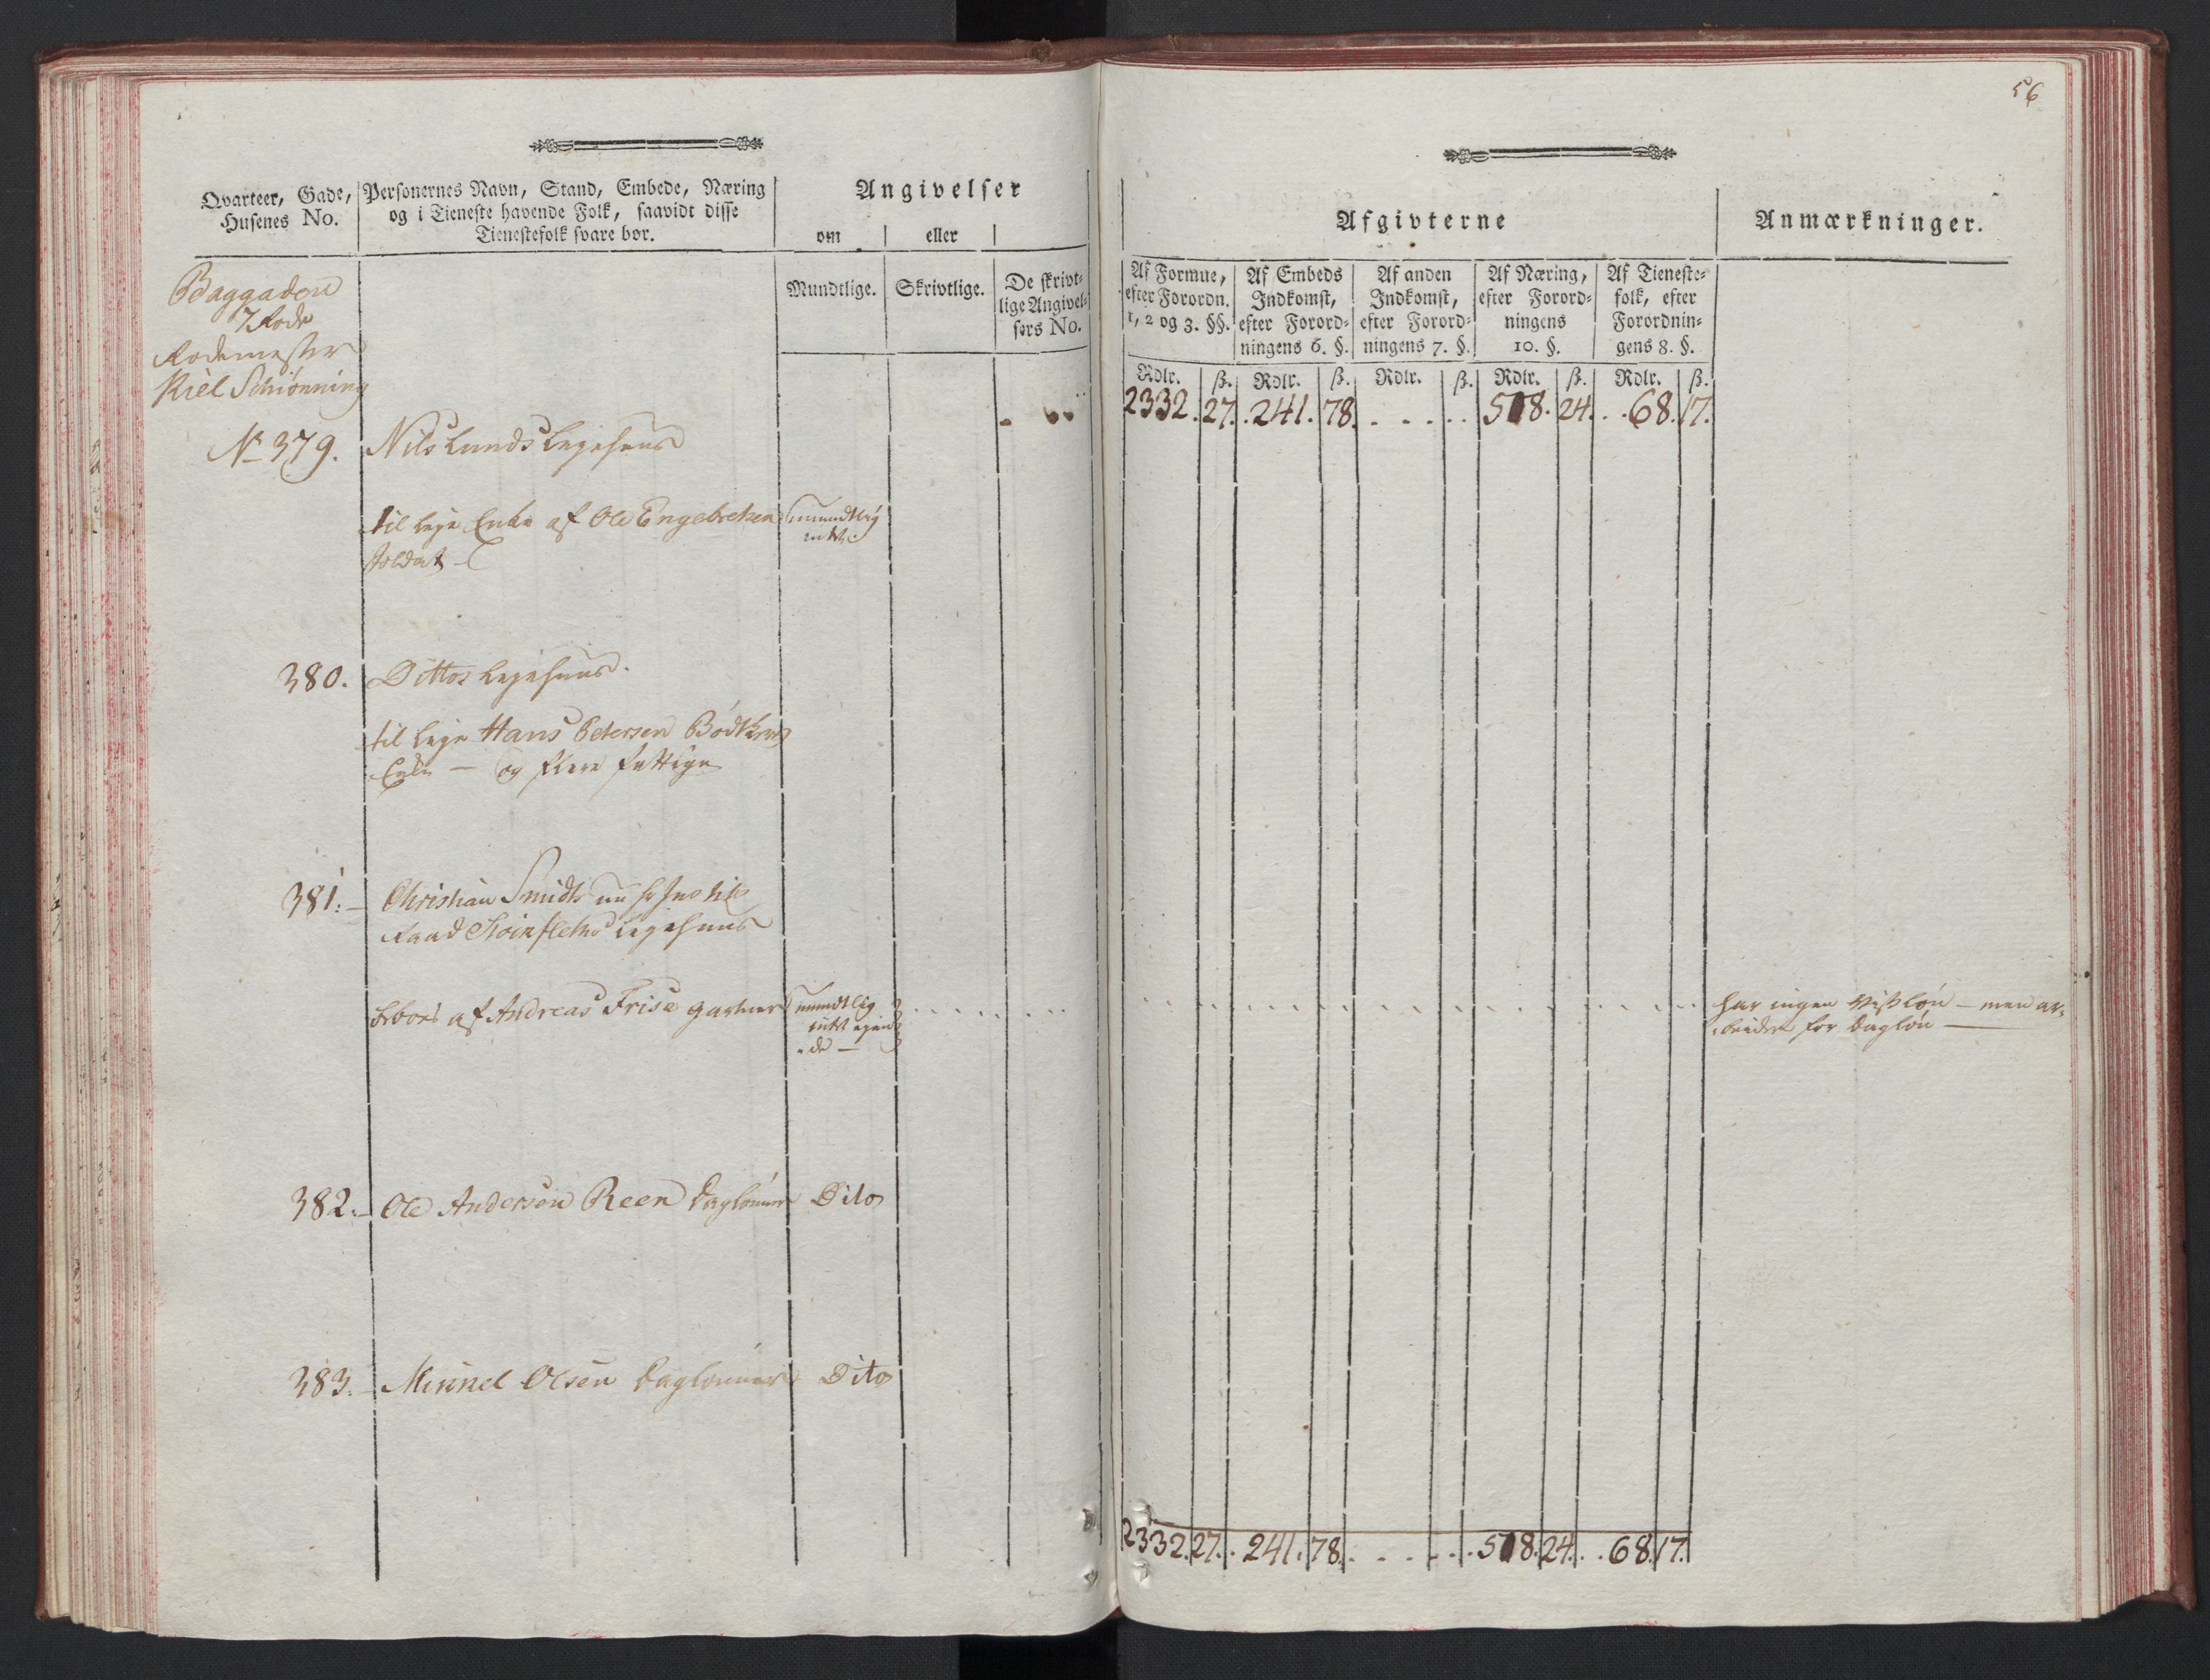 56
Qvarteer, Gade,
Husenes No.
Personernes Navn, Stand, Embede, Næring
og i Tieneste havende Folk, saavidt disse
Tienestefolk svare bør.
Angivelser
om eller
Mundtlige. Skrivtlige. De skrivt=
lige Angivel=
sers No.
Baggaden
7 Rode
Rodemester
Niel Schiønning
No 379. Nils Lunds Lejehuus
til leje Enke af Ole Engebretsen mundtlig
intet.
Soldat
380. Dittos Lejehuus.
til leje Hans Petersen Bødkers
Enke — og flere fattige
381. Christian Smidts nu
Raad Steinfleths Lejehuus
beboes af Andreas Frise gartner mundtlig
intet ejen
de —
382. Ole Andersen Reen Daglønner Dito
383. Mikkel Olsen Daglønner Dito
Afgivterne
Anmærkninger.
Af Formue,
efter Forordn.
1, 2 og 3. §§.
Af Embeds
Indkomst,
efter Forord=
ningens 6. §.
Af anden
Indkomst,
efter Forord=
ningens 7. §.
Af Næring,
efter Forord=
ningens
10. §.
Af Tieneste=
folk, efter
Forordnin=
gens 8. §.
Rdlr. ß. Rdlr. ß. Rdlr. ß. Rdlr. ß. Rdlr. ß.
2332. 27. 241. 78. . . . . . 518. 24. . . 68. 17.
har ingen vis løn — men ar=
beider for Dagløn —
2332. 27. . 241. 78. . . . . . 518. 24. . . 68. 17.